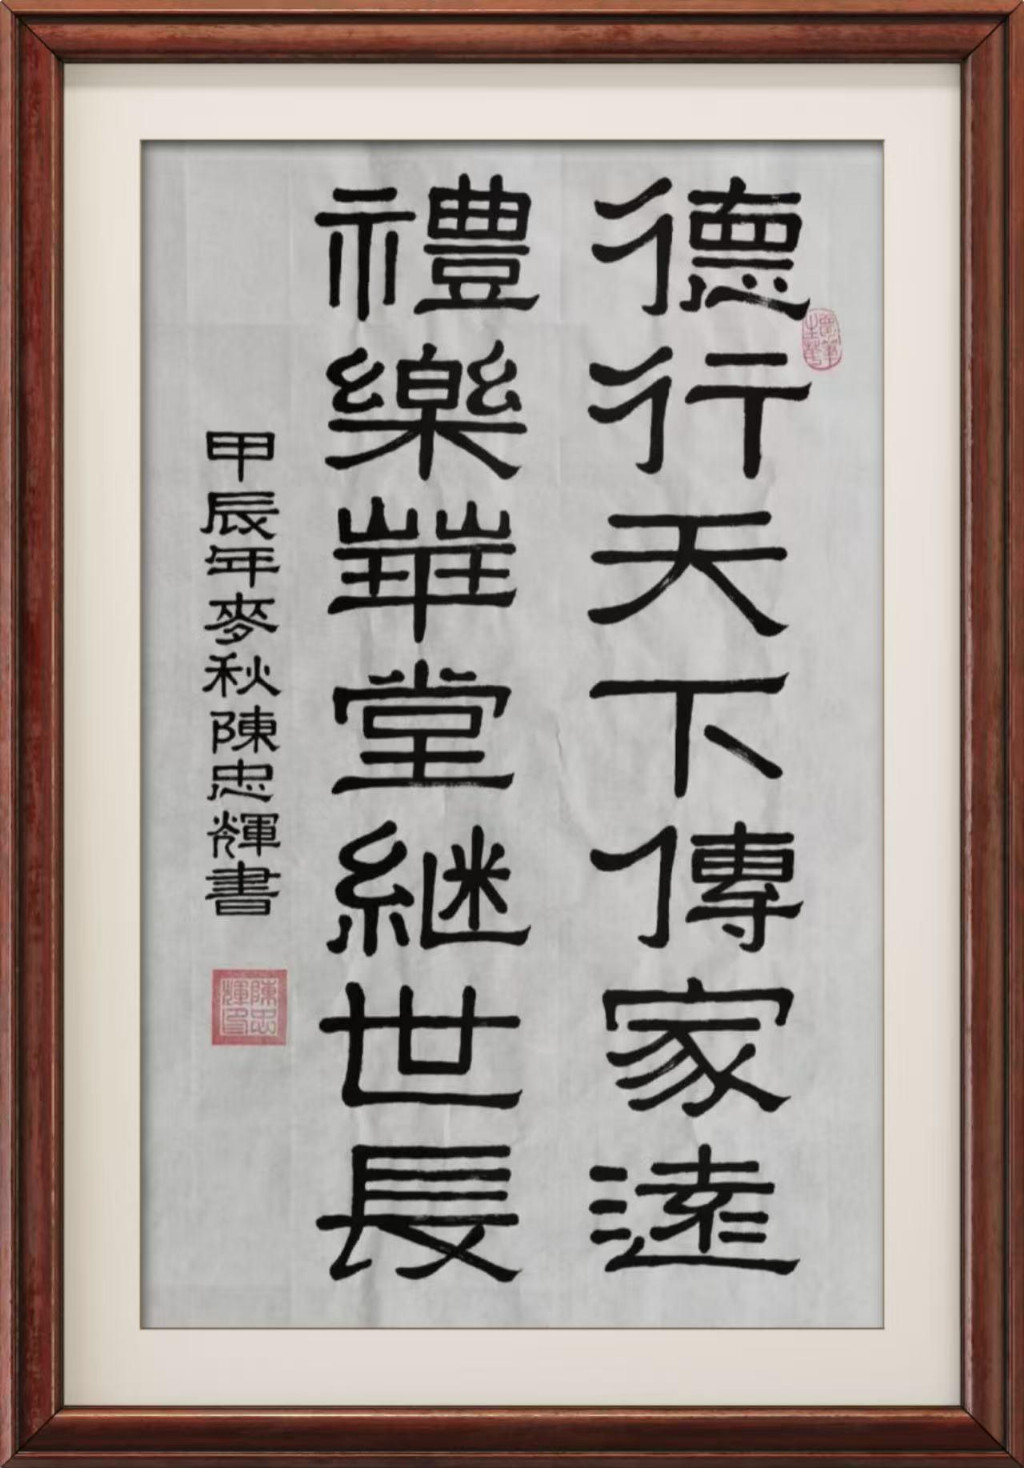 德行天下傳家遠
禮樂華堂継世長
甲辰年麥秋陳忠輝書
陳忠輝印